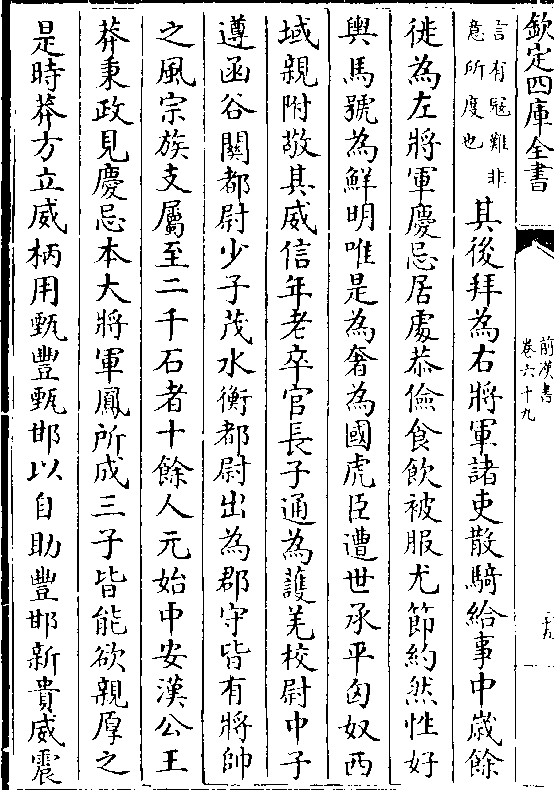 欽定四庫全書
前漢書
卷六十九
言有冦難非
意所度也
其後拜為右將軍諸吏散騎給事中歳餘
徙為左將軍慶忌居處恭儉食飲被服尤節約然性好
輿馬號為鮮明唯是為奢為國虎臣遭世承平匈奴西
域親附敬其威信年老卒官長子通為護羌校尉中子
遵函谷關都尉少子茂水衡都尉出為郡守皆有將帥
之風宗族支屬至二千石者十餘人元始中安漢公王
莽秉政見慶忌本大將軍鳳所成三子皆能欲親厚之
是時莽方立威柄用甄豐甄邯以自助豐邯新貴威震